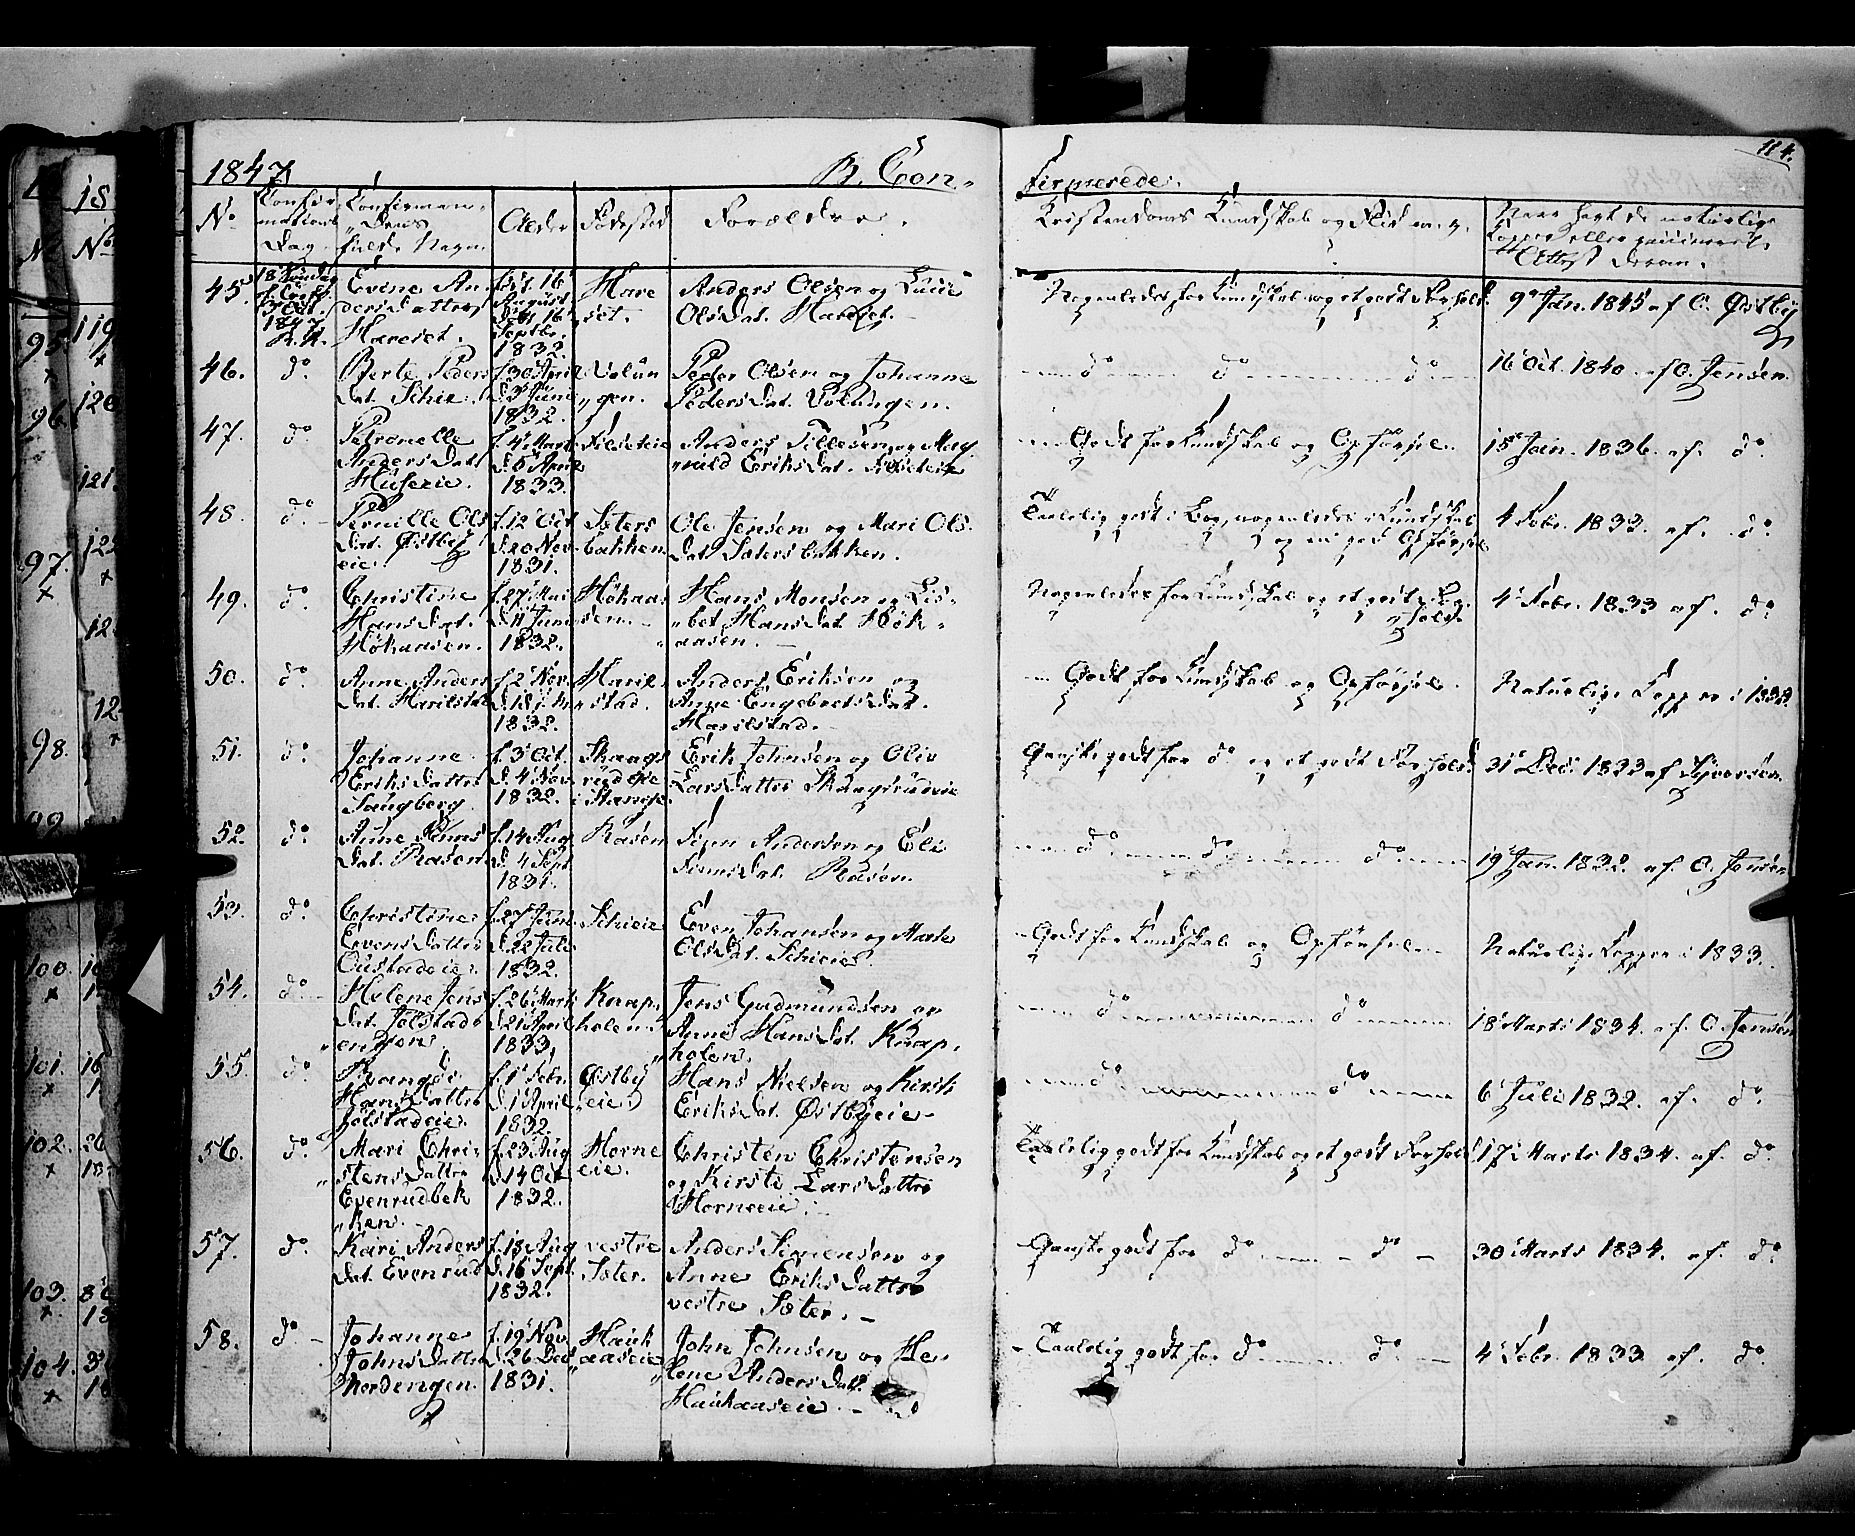 1847 B. Con-
firmerede.
114.
No
Confir
mations
Dag
Confirman-
dens
fulde Navn.
Alder
Fødested
Forældre.
Kristendoms Kundskab og Flid m. v.
Naar havt de naturlige
Kopper eller vaccineret,
Attest derom.
45. 18 Søndag
1847
Evine An
dersdatter
Hareset.
16
August
16
Septbr.
1832.
Hare
set.
Anders Olsen og
Olsdat. Hareset.
Nogenledes for Kundskab og et godt Forhold.
9 Jan. 1845 af O. Østby
46. do.
Berte Peders
dat. Schie.
f. 30 April
d. 3 Juni
1832.
Volun
gen.
Peder Olsen og Johanne
Pedersdat. Volungen.
do do do
16 Oct. 1840 af O. Jensen.
47. do.
Petronelle
Andersdat.
Huseeie.
f. 4 Marts
d. 5 April
1833.
Anders Tillesen og Mag
nild Eriksdat.
Godt for Kundskab og Opførsel.
15 Jan. 1836. af. do.
48. do.
Pernille Ols
dat. Østby
eie.
f. 12 Oct
d. 20 Nov.
1831.
Sæters
bakken
Ole Jensen og Mari Ols
dat. Sætersbakken.
Taalelig godt i Bog, nogenledes i Kundskab
og en god Opførsel
4 Febr. 1833. af. do.
49. do.
Christine
Hansdat.
Høkaasen.
f. 27 Mai
d. 11 Juni
1832.
Høkaas
sen.
Hans Monsen og Lis-
bet Hansdat. Høk-
aasen.
Nogenledes for Kundskab og et godt For
hold.
4 Febr. 1833 af. do.
50. do.
Anne Anders
dat. Harilstad
f. 2 Nov.
1832.
Haril
stad.
Anders Eriksen og
Anne Engebretsdat.
Harilstad.
Godt for Kundskab og Opførsel.
Naturlige Kopper i 1833.
51. do.
Johanne
Eriksdatter
Saugberg
f. 3 Oct.
d. 4 Nov.
1832.
Skaugs
rudeie
i Stange.
Erik Johnsen og Oliv
Larsdatter Skaugsrudeie
Ganske godt for do og et godt Forhold.
31 Dec. 1833 af Syversen.
52. do.
Anne Simens
dat. Raasen
f. 14 Aug
d. 4 Sept
1831.
Raasen
Simen Andersen og Eli
Simensdat. Raasen.
do do do
19 Jan. 1832. af. O. Jensen
53. do.
Christine
Evensdatter
Oustadeie.
f. 27 Juni
d. 22 Juli
1832.
Schieeie
Even Johansen og Marte
Olsdat. Schieeie.
Godt for Kundskab og Opførsel.
Naturlige Kopper i 1833.
54. do.
Helene Jens
dat. Jølstads
engen.
f. 26 Marts
d. 21 April
1833.
Knap,
holen.
Jens Gudmundsen og
Anne Hansdat. Knap,
holen.
do do
18 Marts 1834. af. O. Jensen
55. do.
Rangdi
Hansdatter
Jølstadeie.
f. 1 Febr.
d. 1 April
1832.
Østby
eie
Hans Nielsen og Kirsti
Eriksdat. Østbyeie
do do
6 Juli 1832. af. do.
56. do.
Mari Chri
stensdatter
Evenrudbak
ken.
f. 23 Aug
d. 14 Oct
1832.
Horne
eie.
Christen Christensen
og Kirsti Larsdatter
Horneeie.
Taalelig godt for Kundskab og et godt Forhold.
17 Marts 1834. af. do.
57. do.
Kari Anders
dat. Evenrud
f. 18 Aug
d. 16 Sept.
1832.
vestre
Sæter.
Anders Simensen og
Anne Eriksdatter
vestre Sæter.
Ganske godt for do do
30 Marts 1834. af. do
58. do
Johanne
Johnsdatter
Nordengen.
f. 19 Nov.
d. 26 Dec
1831.
Hauk
aaseie
John Johnsen og He-
lene Andersdat.
Haukaaseie.
Taalelig godt for do do
4 Febr. 1833. af. do.
95.
96.
97.
98.
100.
101.
102.
103.
104.
119.
120.
121.